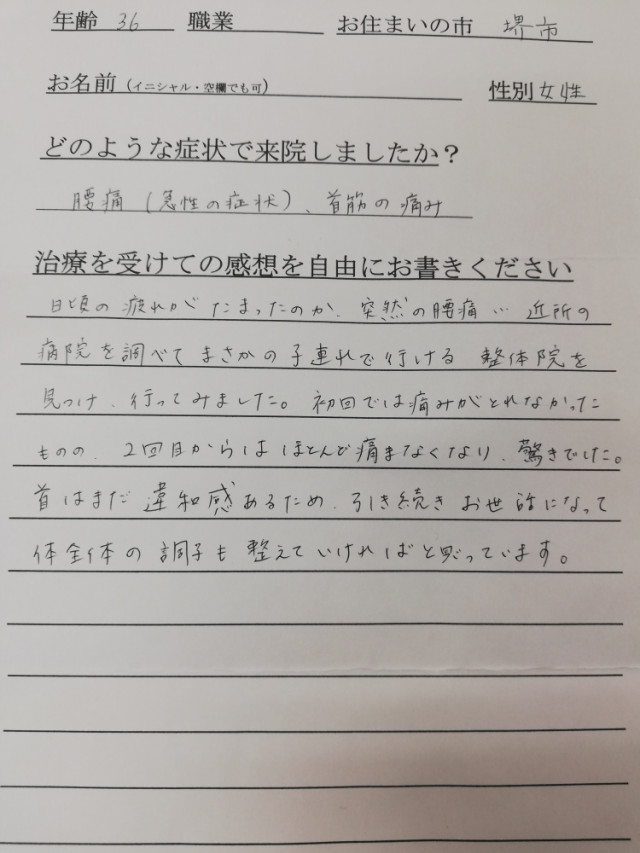 年齢 36 職業 お住まいの市 堺市
お名前(イニシャル・空欄でも可) 性別 女性
どのような症状で来院しましたか?
腰痛(急性の症状)、首筋の痛み
治療を受けての感想を自由にお書きください
日頃の疲れがたまったのか、突然の腰痛… 近所の
病院を調べてまさかの子連れで行ける 整体院を
見つけ、行ってみました。初回では痛みがとれなかった
ものの、2回目からはほとんど痛まなくなり、驚きでした。
首はまだ違和感あるため、引き続きお世話になって
体全体の調子も整えていければと思っています。